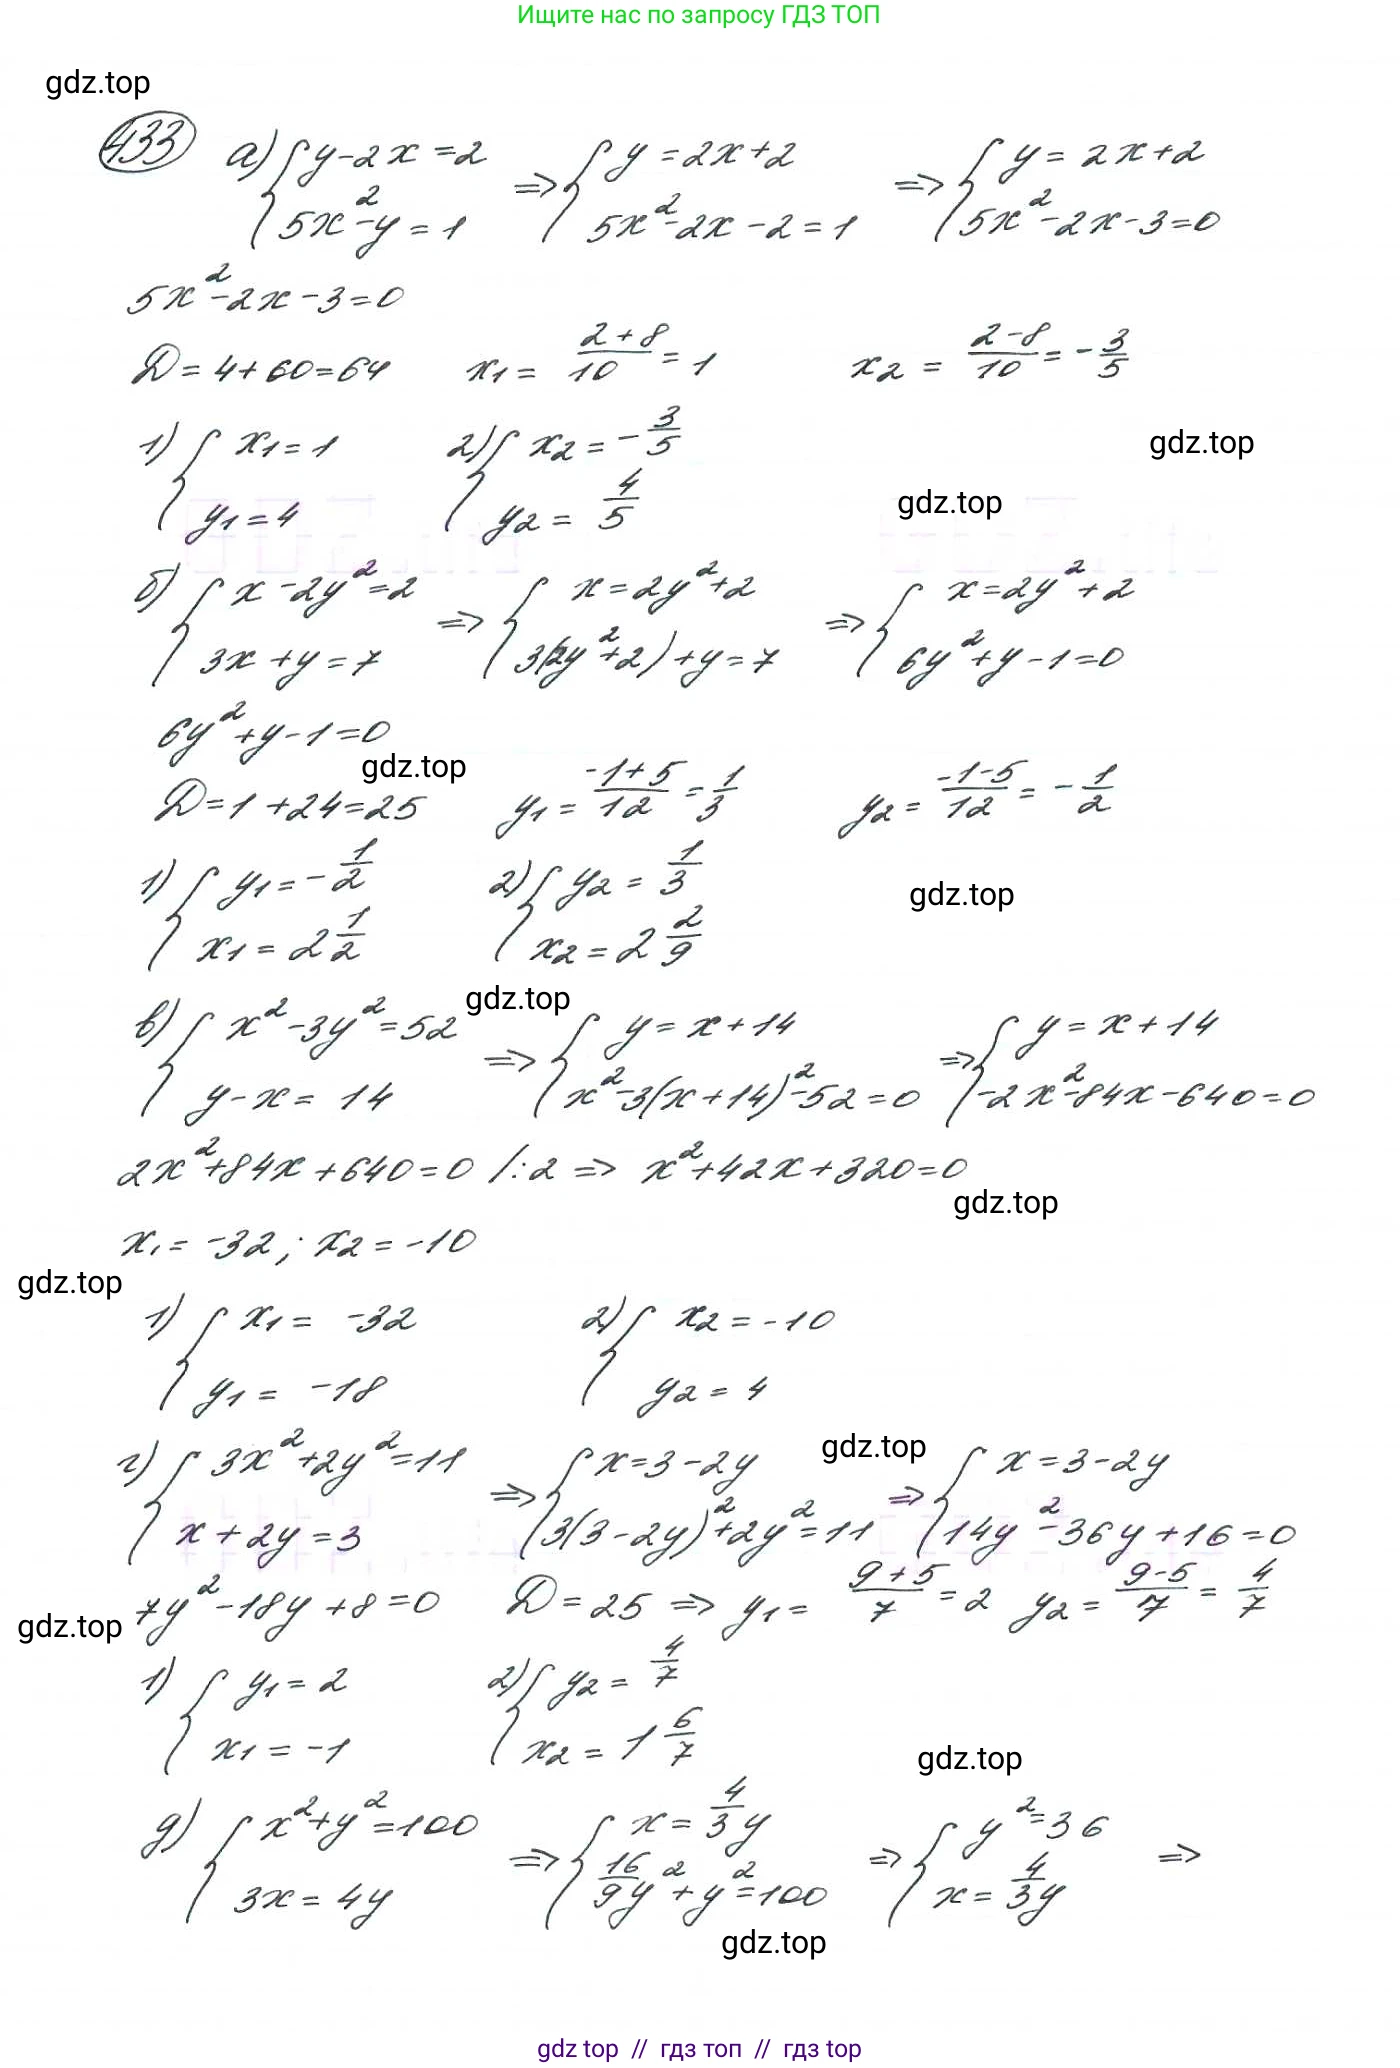 Ищите нас по запросу ГДЗ ТОП
gdz.top
433 а) { y-2x=2 ; 5x²-y=1 => { y=2x+2 ; 5x²-2x-2=1 => { y=2x+2 ; 5x²-2x-3=0
5x²-2x-3=0
D=4+60=64 x₁= (2+8)/10 =1 x₂ = (2-8)/10 = -3/5
1) { x₁=1 ; y₁=4 2) { x₂=-3/5 ; y₂= 4/5
gdz.top
gdz.top
б) { x-2y²=2 ; 3x+y=7 => { x=2y²+2 ; 3(2y²+2)+y=7 => { x=2y²+2 ; 6y²+y-1=0
6y²+y-1=0
gdz.top
D=1+24=25 y₁= (-1+5)/12 = 1/3 y₂= (-1-5)/12 = -1/2
1) { y₁=-1/2 ; x₁=2 1/2 2) { y₂= 1/3 ; x₂=2 2/9
gdz.top
gdz.top
в) { x²-3y²=52 ; y-x=14 => { y=x+14 ; x²-3(x+14)²-52=0 => { y=x+14 ; -2x²-84x-640=0
2x²+84x+640=0 /:2 => x²+42x+320=0
gdz.top
x₁=-32; x₂=-10
gdz.top
1) { x₁= -32 ; y₁= -18 2) { x₂=-10 ; y₂=4
gdz.top
г) { 3x²+2y²=11 ; x+2y=3 => { x=3-2y ; 3(3-2y)²+2y²=11 => { x=3-2y ; 14y²-36y+16=0
7y²-18y+8=0 D=25 => y₁= (9+5)/7 =2 y₂= (9-5)/7 = 4/7
gdz.top
1) { y₁=2 ; x₁=-1 2) { y₂= 4/7 ; x₂=1 6/7
gdz.top
д) { x²+y²=100 ; 3x=4y => { x= 4/3 y ; 16/9 y²+y²=100 => { y²=36 ; x= 4/3 y =>
gdz.top
gdz top // гдз топ // гдз top